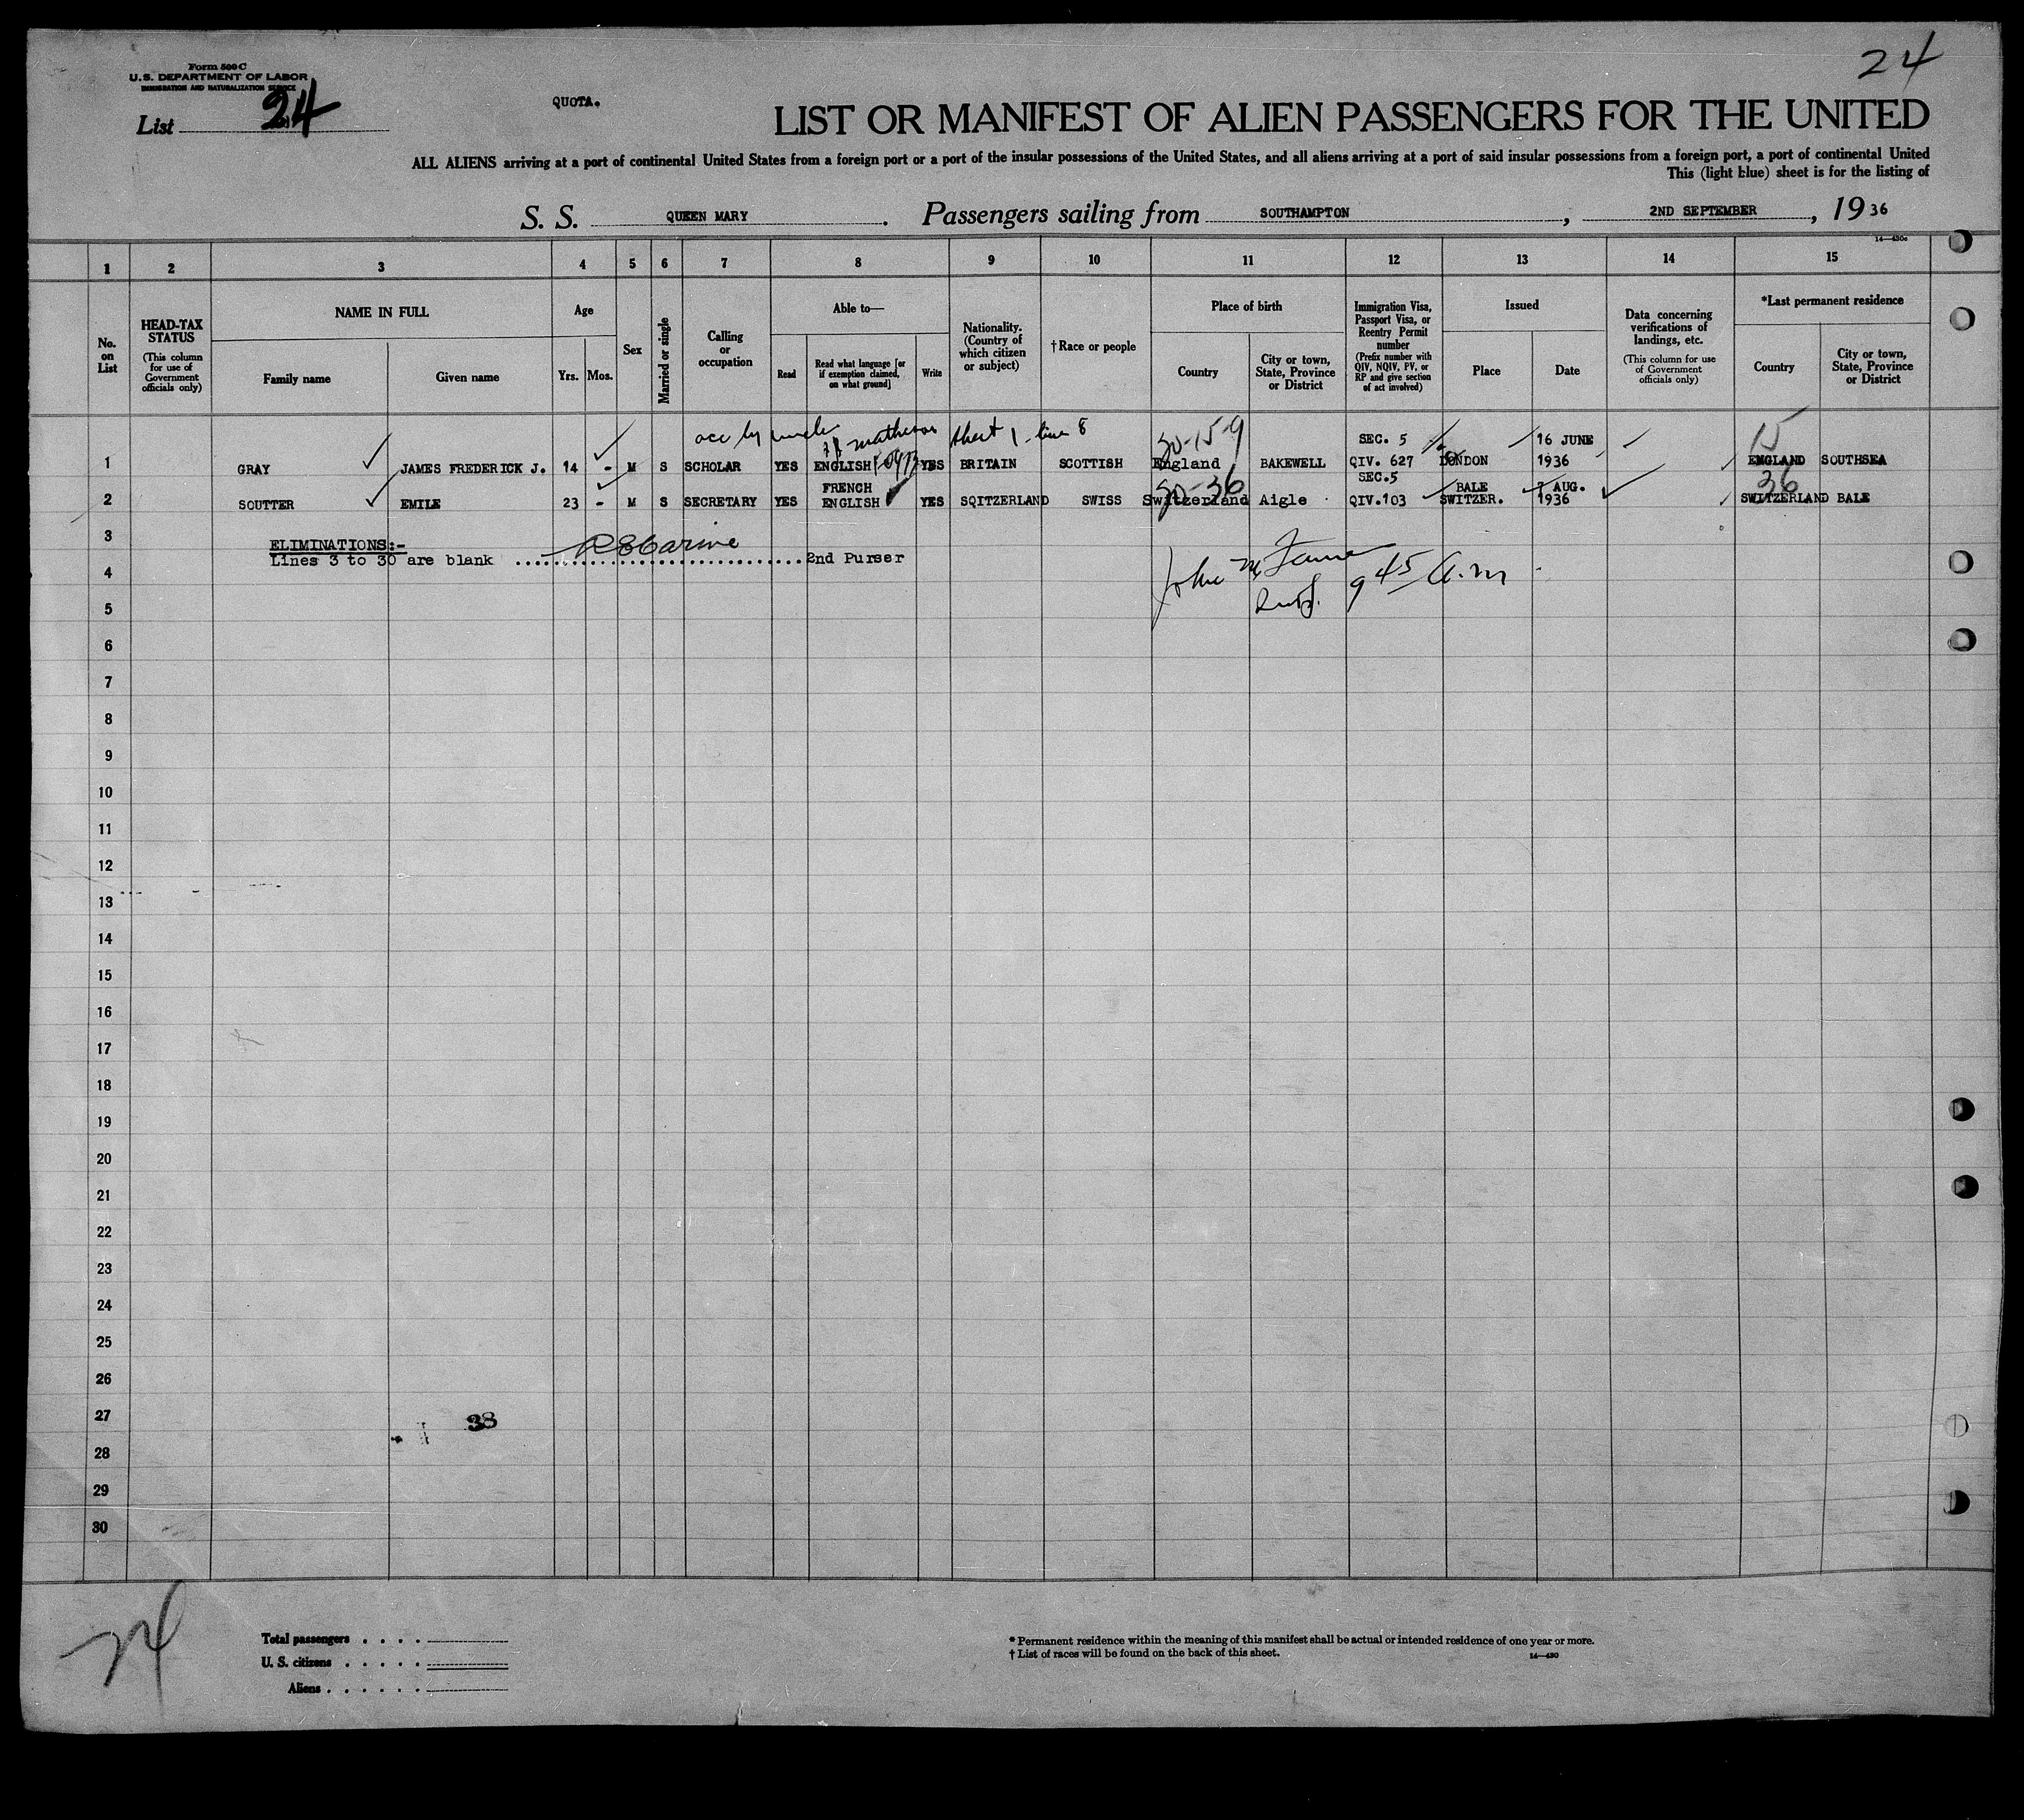 24
Form 500 C
U.S. DEPARTMENT OF LABOR
IMMIGRATION AND NATURALIZATION SERVICE
List 24
QUOTA.
LIST OR MANIFEST OF ALIEN PASSENGERS FOR THE UNITED
ALL ALIENS arriving at a port of continental United States from a foreign port or a port of the insular possessions of the United States, and all aliens arriving at a port of said insular possessions from a foreign port, a port of continental United
This (light blue) sheet is for the listing of
S. S. QUEEN MARY. Passengers sailing from SOUTHAMPTON, 2ND SEPTEMBER, 19 36
14—430c
1 2 3 4 5 6 7 8 9 10 11 12 13 14 15
No. on List
HEAD-TAX STATUS (This column for use of Government officials only)
NAME IN FULL
Family name Given name
Age
Yrs. Mos.
Sex
Married or single
Calling or occupation
Able to—
Read
Read what language [or if exemption claimed, on what ground]
Write
Nationality. (Country of which citizen or subject)
†Race or people
Place of birth
Country
City or town, State, Province or District
Immigration Visa, Passport Visa, or Reentry Permit number (Prefix number with QIV, NQIV, PV, or RP and give section of act involved)
Issued
Place Date
Data concerning verifications of landings, etc. (This column for use of Government officials only)
*Last permanent residence
Country
City or town, State, Province or District
acc by uncle matheson sheet 1 - line 8 20-15-9 SEC. 5 16 JUNE 15
1 GRAY JAMES FREDERICK J. 14 - M S SCHOLAR YES ENGLISH YES BRITAIN SCOTTISH England BAKEWELL QIV. 627 LONDON 1936 ENGLAND SOUTHSEA
FRENCH 20-36 SEC.5 BALE 7 AUG. 36
2 SOUTTER EMILE 23 - M S SECRETARY YES ENGLISH YES SQITZERLAND SWISS Switzerland Aigle QIV.103 SWITZER. 1936 SWITZERLAND BALE
3 ELIMINATIONS:-
Lines 3 to 30 are blank ..............................2nd Purser
John 9 45 a.m
4
5
6
7
8
9
10
11
12
13
14
15
16
17
18
19
20
21
22
23
24
25
26
27
38
28
29
30
24
Total passengers . . . .
U. S. citizens . . . . .
Aliens . . . . . .
* Permanent residence within the meaning of this manifest shall be actual or intended residence of one year or more.
† List of races will be found on the back of this sheet.
14—430